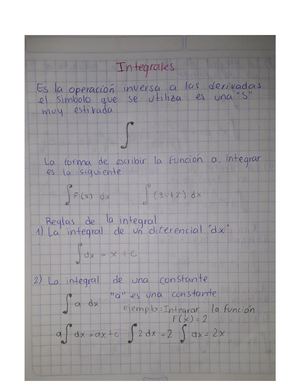 Integrales
Es la operación inversa a las derivadas
el simbolo que se utiliza es una "S"
muy estirada
∫
La forma de escribir la función a integrar
es la siguiente
∫ F(x) dx ∫ dx
Reglas de la integral
1) La integral de un diferencial "dx"
∫ dx = x + c
2) La integral de una constante
∫ a dx "a" es una constante
ejemplo: Integrar la función
F(x) = 2
a∫ dx = ax + c ∫ 2 dx = 2 ∫ dx = 2x